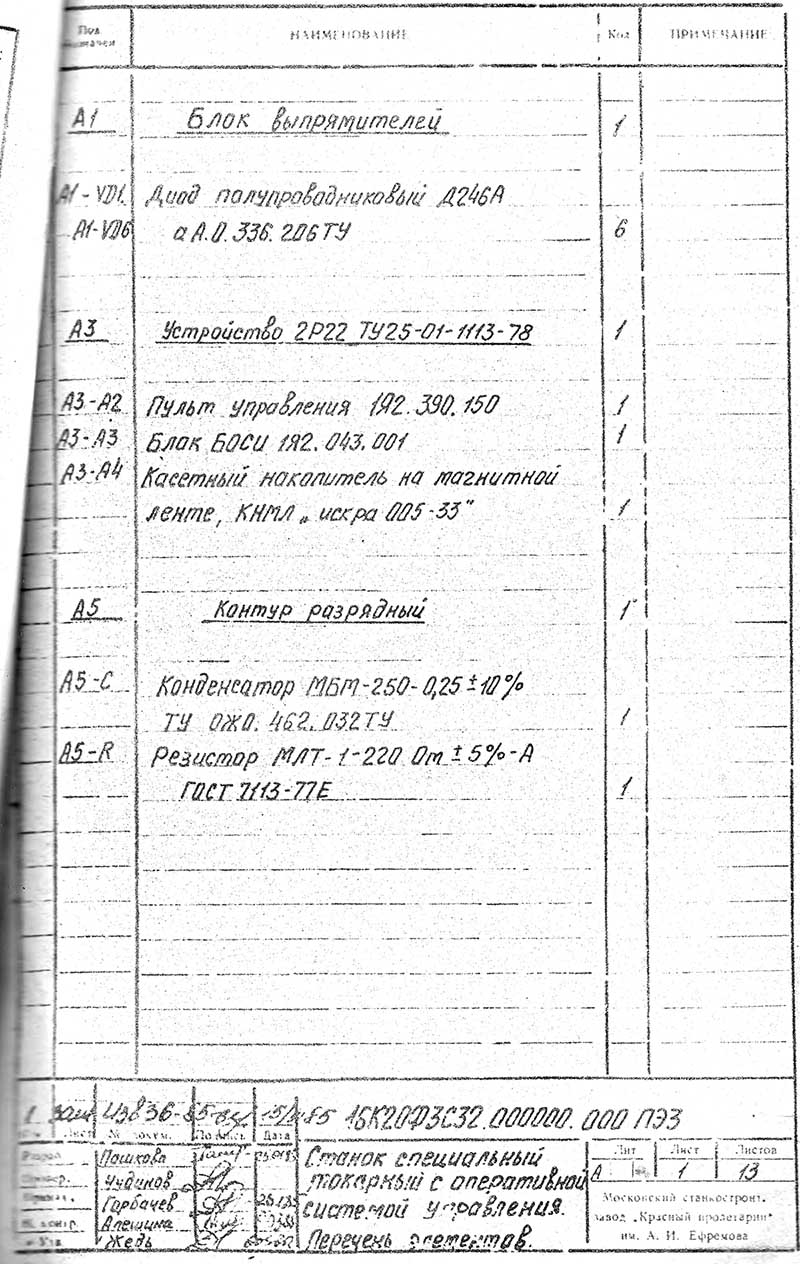 Поз. обозначен. НАИМЕНОВАНИЕ Кол ПРИМЕЧАНИЕ
А1 Блок выпрямителей 1
А1-VD1. Диод полупроводниковый Д246А
А1-VD6 аА.0.336.206ТУ 6
А3 Устройство 2Р22 ТУ25-01-1113-78 1
А3-А2 Пульт управления 1Я2.390.150 1
А3-А3 Блок БОСИ 1Я2.043.001 1
А3-А4 Касетный накопитель на магнитной
ленте, КНМЛ „искра 005-33" 1
А5 Контур разрядный 1
А5-С Конденсатор МБМ-250-0,25±10%
ТУ ОЖО.462.032ТУ 1
А5-R Резистор МЛТ-1-220 Ом ±5%-А
ГОСТ 7113-77Е 1
1 Зам ИЗ836-85 85 16К20Ф3С32.000000.000 ПЭ3
Лист № докум. Подпись Дата
Разраб. Пашкова
Чудинов
Горбачев
Н. контр. Алешина
Утв. Жедь
Станок специальный
токарный с оперативной
системой управления.
Перечень элементов.
Лит Лист Листов
А 1 13
Московский станкостроит.
завод „Красный пролетарий"
им. А. И. Ефремова